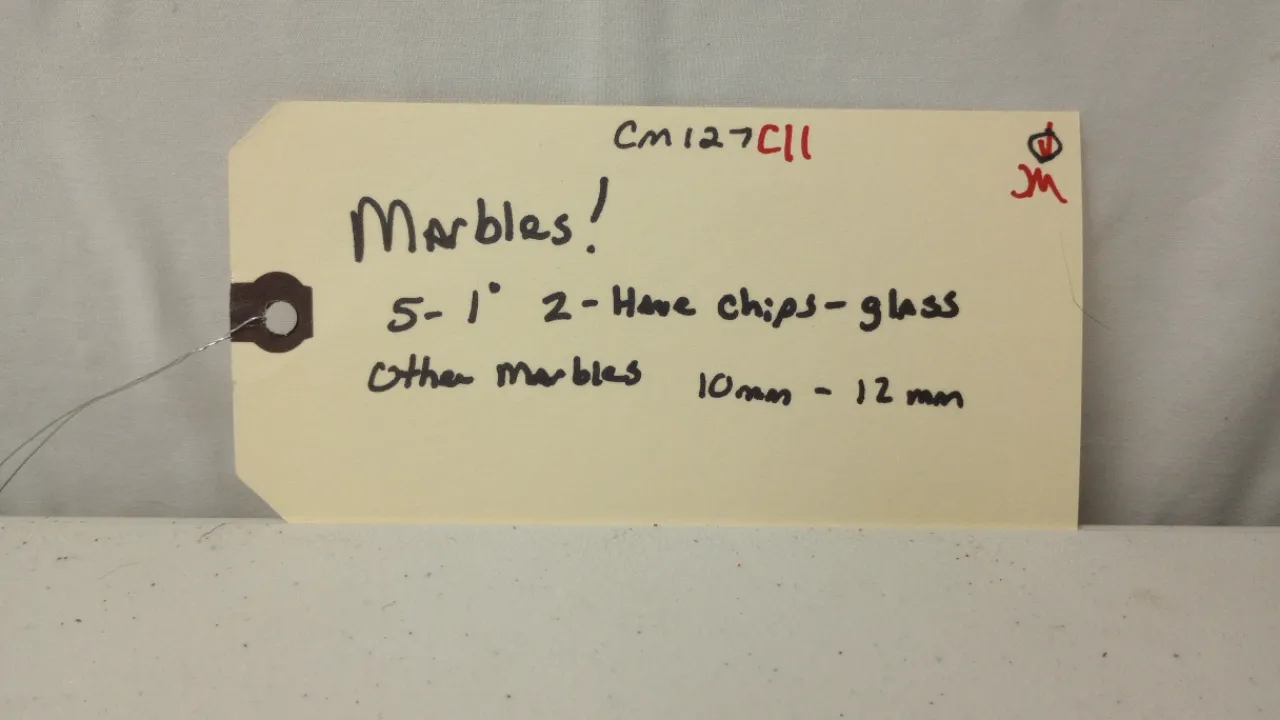 Cm127C11
M
Marbles!
5- 1" 2-Have chips-glass
Other marbles 10mm - 12mm